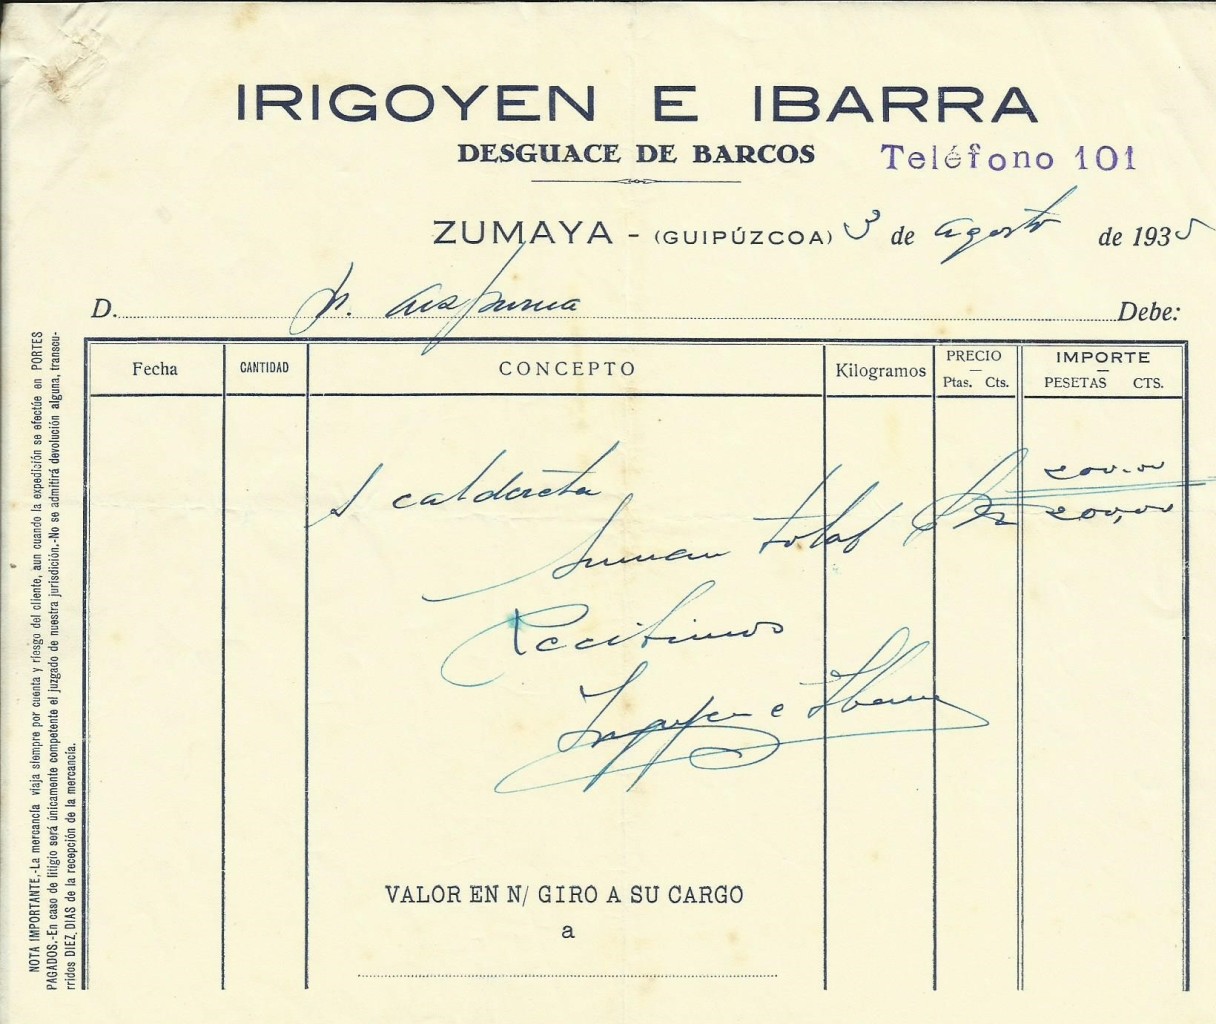 IRIGOYEN E IBARRA
DESGUACE DE BARCOS Teléfono 101
ZUMAYA - (GUIPÚZCOA) 3 de agosto de 1935
D. Sr. Aizpurua Debe:
Fecha CANTIDAD CONCEPTO Kilogramos PRECIO Ptas. Cts. IMPORTE PESETAS CTS.
1 caldereta 200.00
Suman total Ptas 200,00
Recibimos
Irigoyen e Ibarra
VALOR EN N/ GIRO A SU CARGO
a
NOTA IMPORTANTE.-La mercancía viaja siempre por cuenta y riesgo del cliente, aun cuando la expedición se efectúe en PORTES
PAGADOS.-En caso de litigio será únicamente competente el juzgado de nuestra jurisdición.-No se admitirá devolución alguna, transcu-
rridos DIEZ DIAS de la recepción de la mercancía.